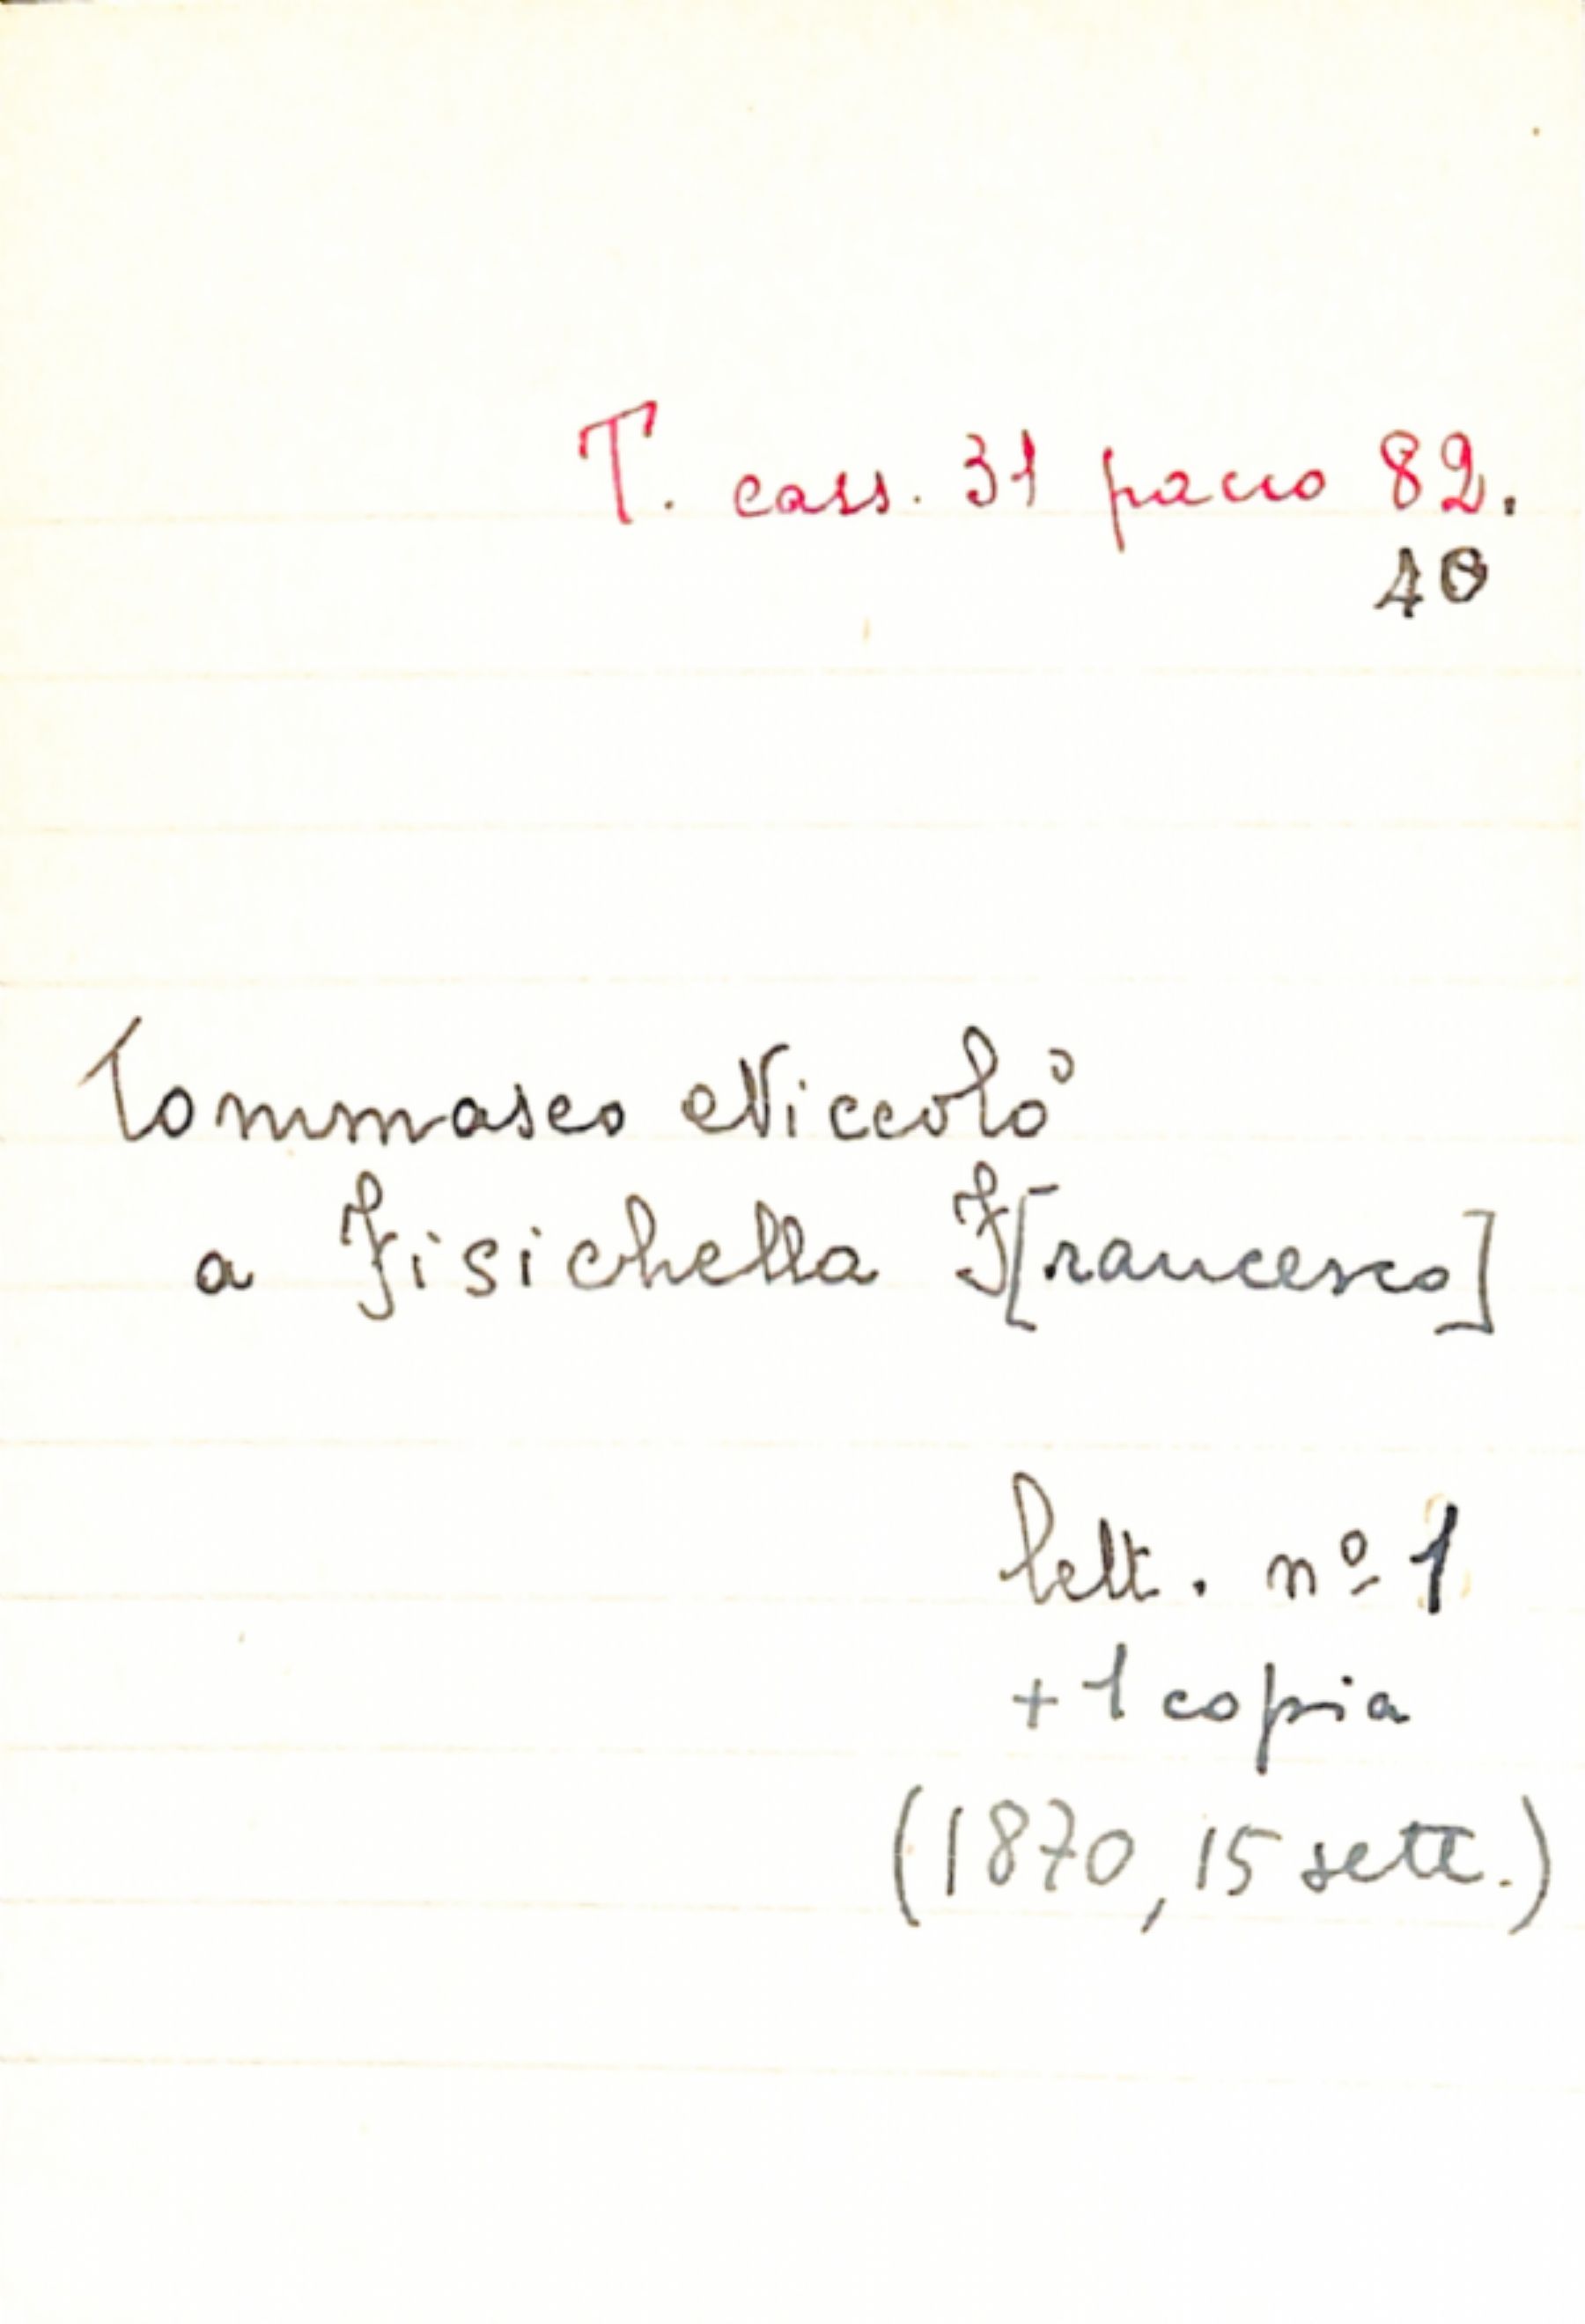 T. cass. 31 pacco 82.
40
Tommaseo Niccolò
a Fisichella F[rancesco]
lett. nº 1
+ 1 copia
(1870, 15 sett.)